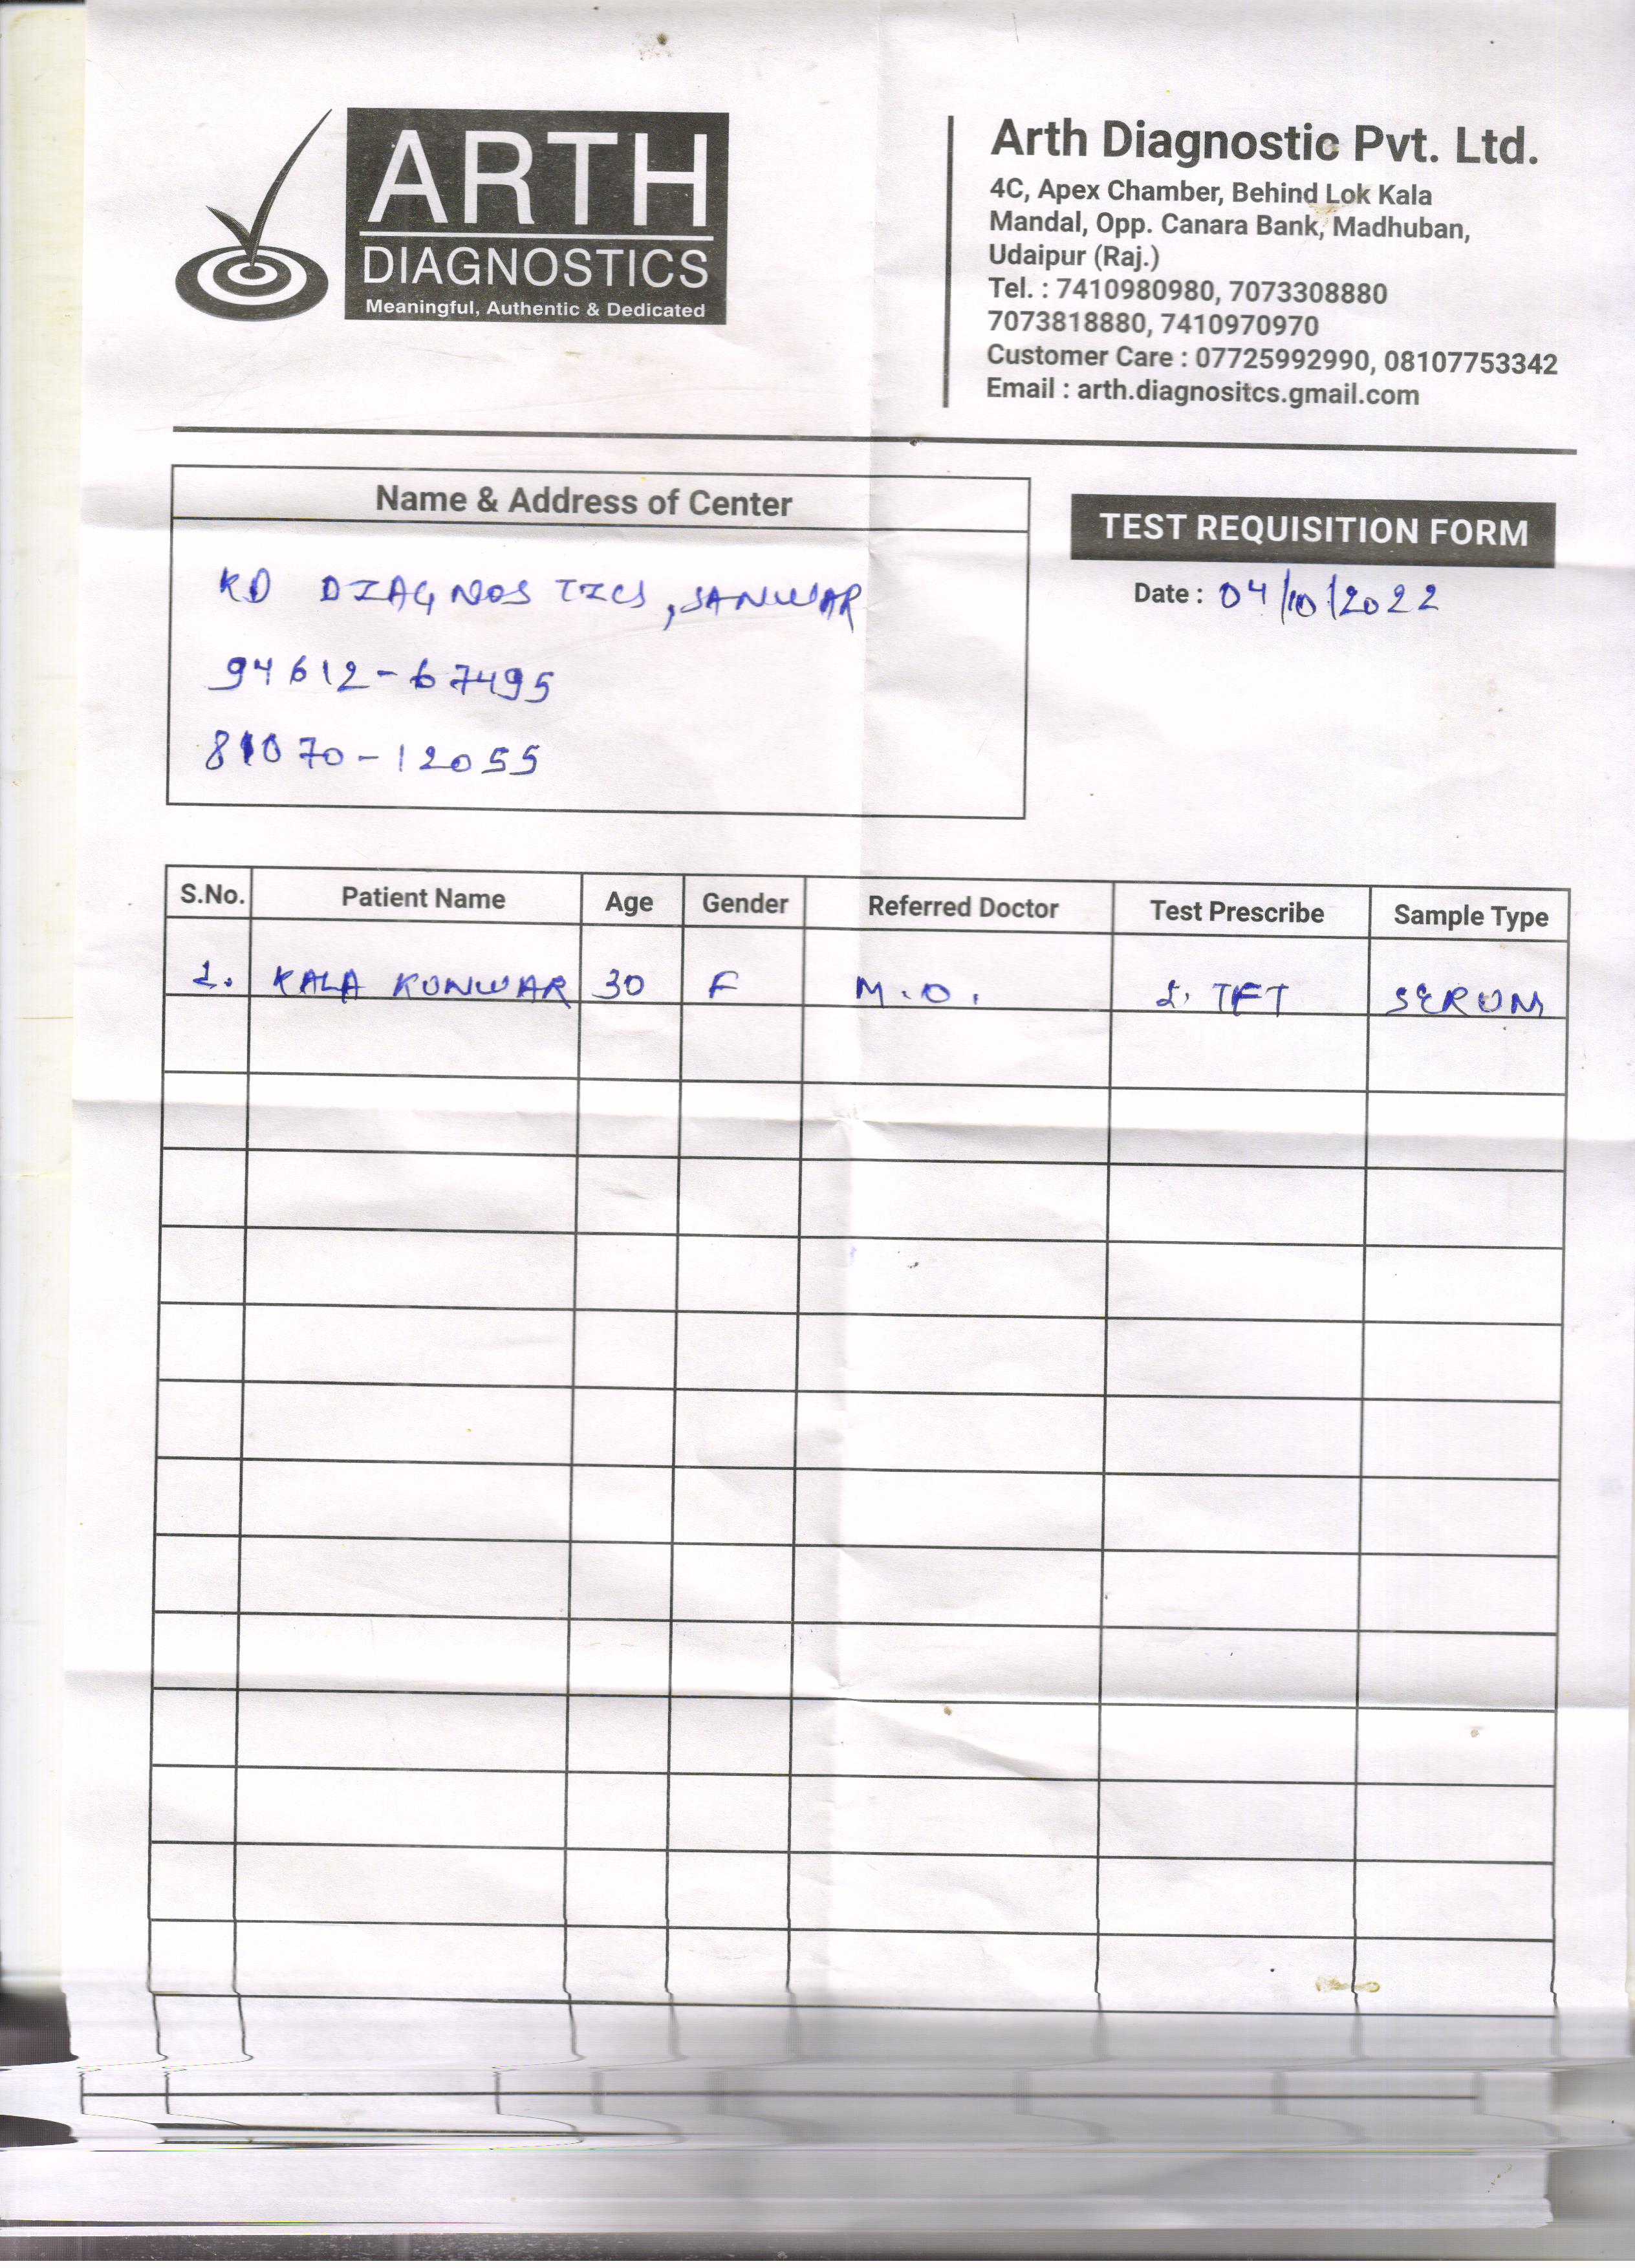 ARTH
DIAGNOSTICS
Meaningful, Authentic & Dedicated
Arth Diagnostic Pvt. Ltd.
4C, Apex Chamber, Behind Lok Kala
Mandal, Opp. Canara Bank, Madhuban,
Udaipur (Raj.)
Tel. : 7410980980, 7073308880
7073818880, 7410970970
Customer Care : 07725992990, 08107753342
Email : arth.diagnositcs.gmail.com
Name & Address of Center
KD DIAGNOSTICS, SANWAR
94612-67495
81070-12055
TEST REQUISITION FORM
Date : 04/10/2022
S.No. Patient Name Age Gender Referred Doctor Test Prescribe Sample Type
1. KALA KUNWAR 30 F M.O. 1. TFT SERUM